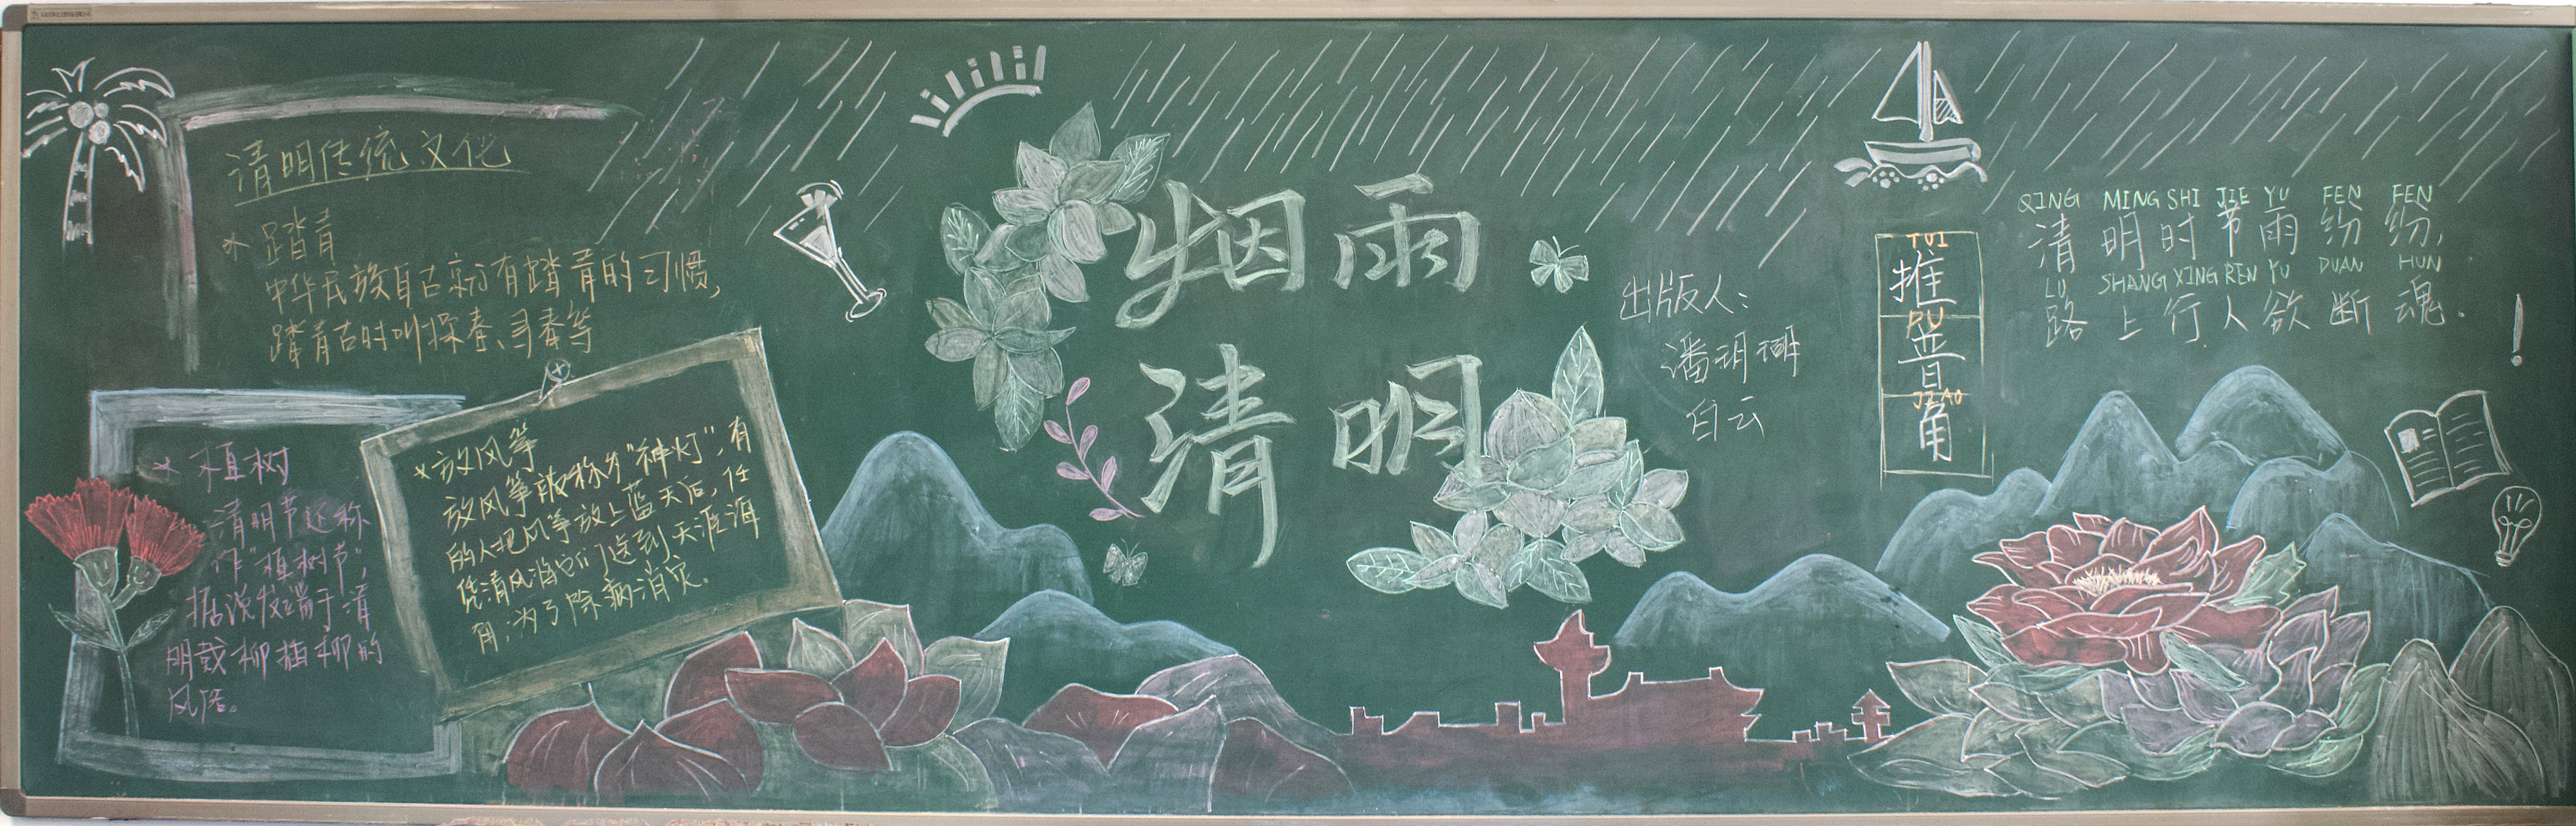 清明传统文化
* 踏青
中华民族自古就有踏青的习惯,
踏青古时叫探春、寻春等
* 植树
清明节还称
作"植树节",
据说发端于清
明戴柳插柳的
风俗。
* 放风筝
放风筝被称为"神灯",有
的人把风筝放上蓝天后,任
凭清风沿它们送到天涯海
角,为了除病消灾。
烟雨
清明
出版人:
白云
TUI
推
PU
普
JIAO
角
QING MING SHI JIE YU FEN FEN
清明时节雨纷纷,
LU SHANG XING REN YU DUAN HUN
路上行人欲断魂.